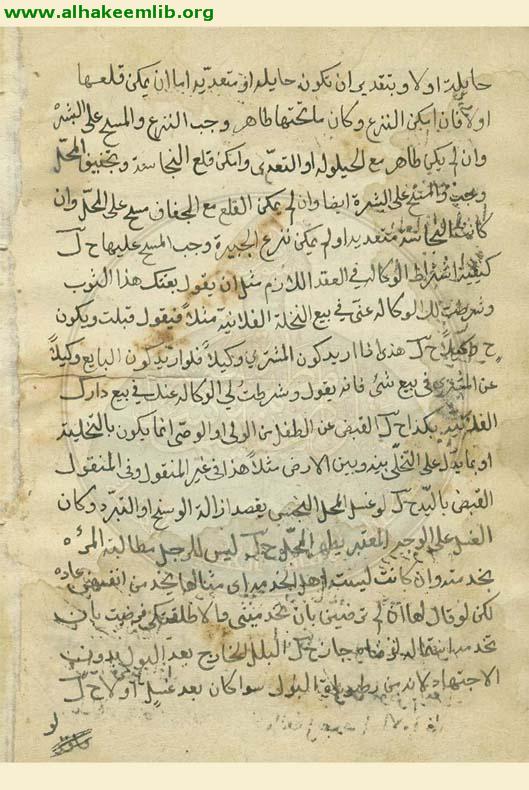 www.alhakeemlib.org
حايلة اولا وبتقدير ان تكون حايلة او متعدية اما ان يمكن قلعها
اولا فان امكن النزع وكان ما تحتها طاهر وجب النزع والمسح على البشرة
وان لم يكن طاهر مع الحيلولة او التعدى وامكن قلع النجاسة وتجفيف المحل
وجب والمسح على البشرة ايضا وان لم يمكن القلع مع الجفاف مسح على المحل وان
كانت النجاسة متعدية او لم يمكن نزع الجبيرة وجب المسح عليها ح ك
كيفية اشتراط الوكالة في العقد اللازم مثل ان يقول بعتك هذا الثوب
وشرطت لك الوكالة عنى في بيع النخلة الفلانية مثلا فيقول قبلت ويكون
ح وكيلا ح ك هذا اذا اريد كون المشتري وكيلا فلو اريد كون البايع وكيلا
عن المشتري في بيع شئ فانه يقول وشرطت لي الوكالة عنك في بيع دارك
الفلانية بكذا ح ك القبض عن الطفل من الولى او الوصى انما يكون بالتخلية
او بما يدل على التخلى بينه وبين الارض مثلا هذا في غير المنقول وفى المنقول
القبض باليد ح ك لو غسل المحل النجس بقصد ازالة الوسخ او التبرد وكان
الغسل على الوجه المعتبر يطهر المحل ح ك ليس للرجل مطالبة المرءة
بخدمته وان كانت ليست اهل الخدمة اى مثالها يخدمن انفسهن عادة
لكن لو قال لها اذا لم ترضين بان تخدمينى والا طلقتك فرضيت بان
تخدمه جاز ح ك البلل الخارج بعد البول بدون
الاجتهاد لابد من رطوبة البول سوا كان بعد غسل او لا ح ك
لو